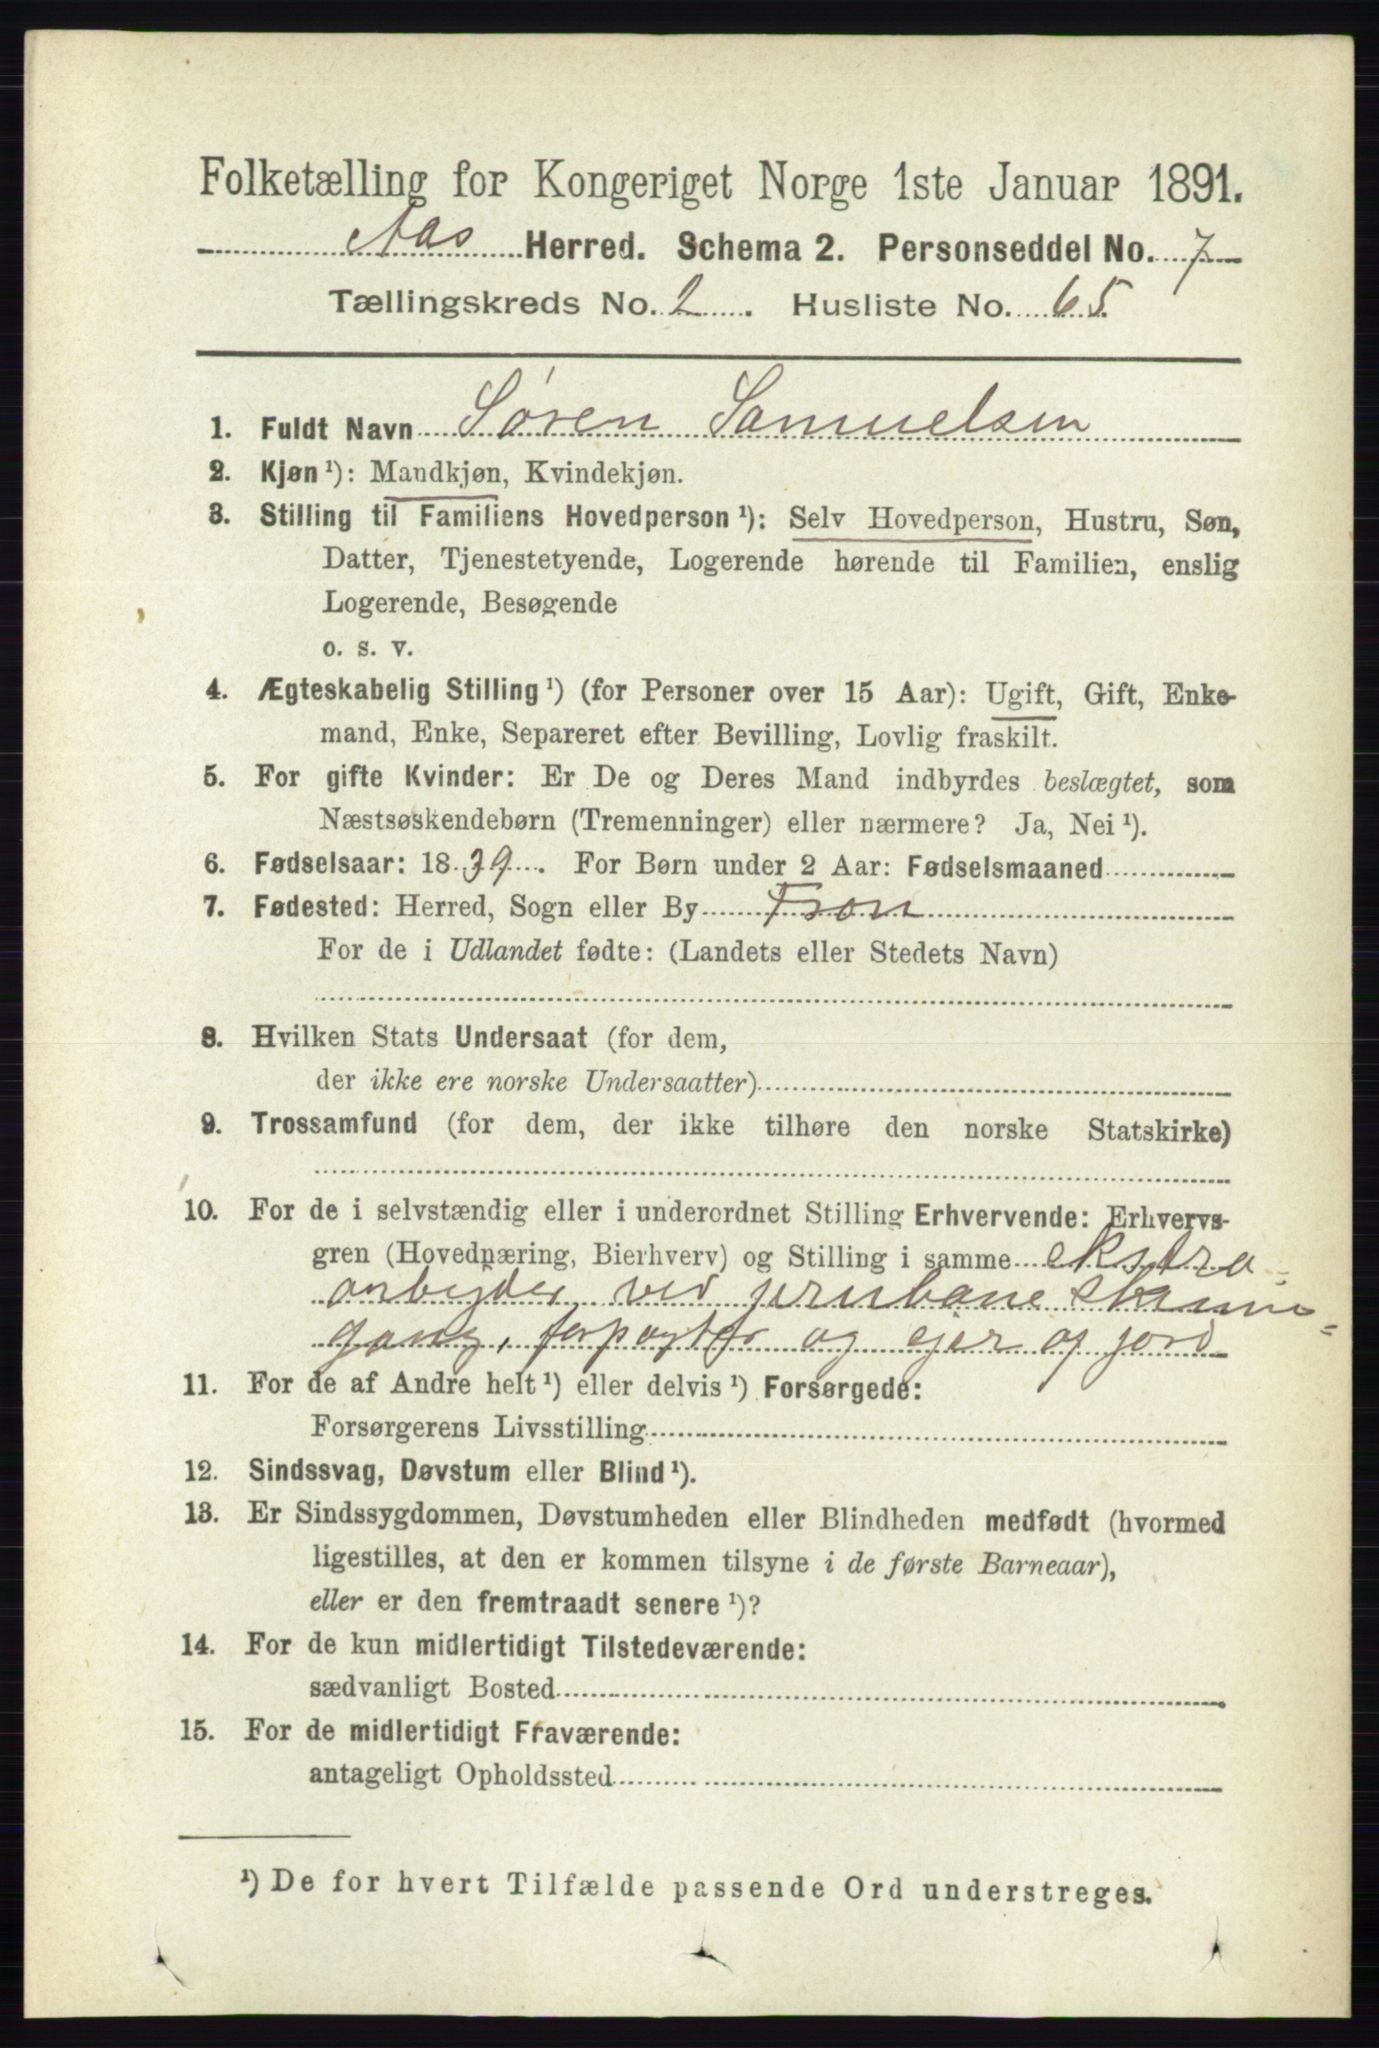 Folketælling for Kongeriget Norge 1ste Januar 1891.
Aas Herred. Schema 2. Personseddel No. 7
Tællingskreds No. 2. Husliste No. 65.
1. Fuldt Navn Søren Samuelsen
2. Kjøn ¹): Mandkjøn, Kvindekjøn.
3. Stilling til Familiens Hovedperson ¹): Selv Hovedperson, Hustru, Søn,
Datter, Tjenestetyende, Logerende hørende til Familien, enslig
Logerende, Besøgende
o. s. v.
4. Ægteskabelig Stilling ¹) (for Personer over 15 Aar): Ugift, Gift, Enke-
mand, Enke, Separeret efter Bevilling, Lovlig fraskilt.
5. For gifte Kvinder: Er De og Deres Mand indbyrdes beslægtet, som
Næstsøskendebørn (Tremenninger) eller nærmere? Ja, Nei ¹).
6. Fødselsaar: 1839. For Børn under 2 Aar: Fødselsmaaned
7. Fødested: Herred, Sogn eller By Fron
For de i Udlandet fødte: (Landets eller Stedets Navn)
8. Hvilken Stats Undersaat (for dem,
der ikke ere norske Undersaatter)
9. Trossamfund (for dem, der ikke tilhøre den norske Statskirke)
10. For de i selvstændig eller i underordnet Stilling Erhvervende: Erhvervs-
gren (Hovednæring, Bierhverv) og Stilling i samme ekstra=
arbeyder ved jernbane
gang, forpagter og ejer af jord
11. For de af Andre helt ¹) eller delvis ¹) Forsørgede:
Forsørgerens Livsstilling
12. Sindssvag, Døvstum eller Blind ¹).
13. Er Sindssygdommen, Døvstumheden eller Blindheden medfødt (hvormed
ligestilles, at den er kommen tilsyne i de første Barneaar),
eller er den fremtraadt senere ¹)?
14. For de kun midlertidigt Tilstedeværende:
sædvanligt Bosted
15. For de midlertidigt Fraværende:
antageligt Opholdssted
¹) De for hvert Tilfælde passende Ord understreges.